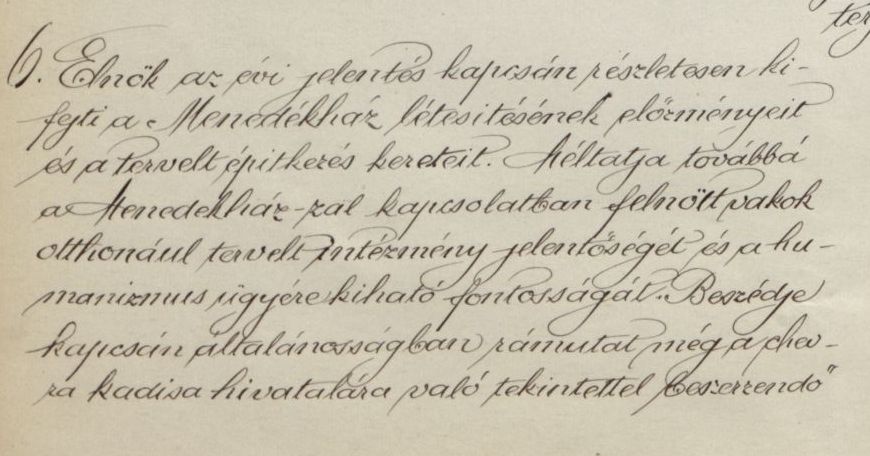 ter
6. Elnök az évi jelentés kapcsán részletesen ki-
fejti a Menedékház létesitésének előzményeit
és a tervelt épitkezés kereteit. Méltatja továbbá
a Menedékház-zal kapcsolatban felnőtt vakok
otthonául tervelt intézmény jelentőségét és a hu-
manizmus ügyére kiható fontosságát. Beszédje
kapcsán általánosságban rámutat még a chev-
ra kadisa hivatalára való tekintettel beszerzendő